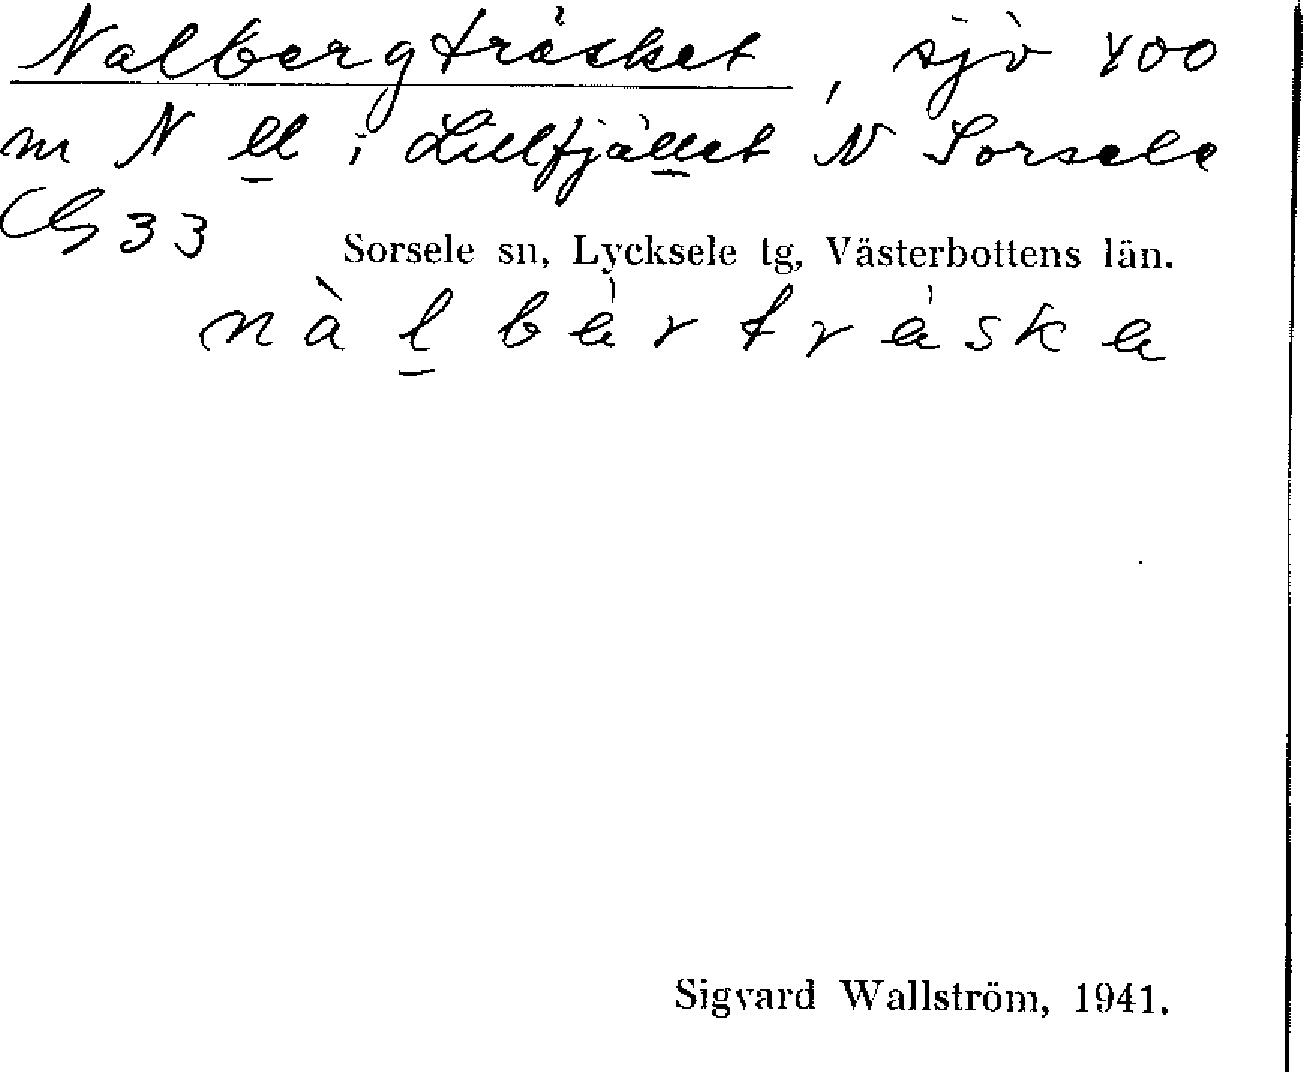 Nalbergträsket, sjö 400
m N ll i Lillfjället N Sorsele
G 33
Sorsele sn, Lycksele tg, Västerbottens län.
nàlbärträska
Sigvard Wallström, 1941.